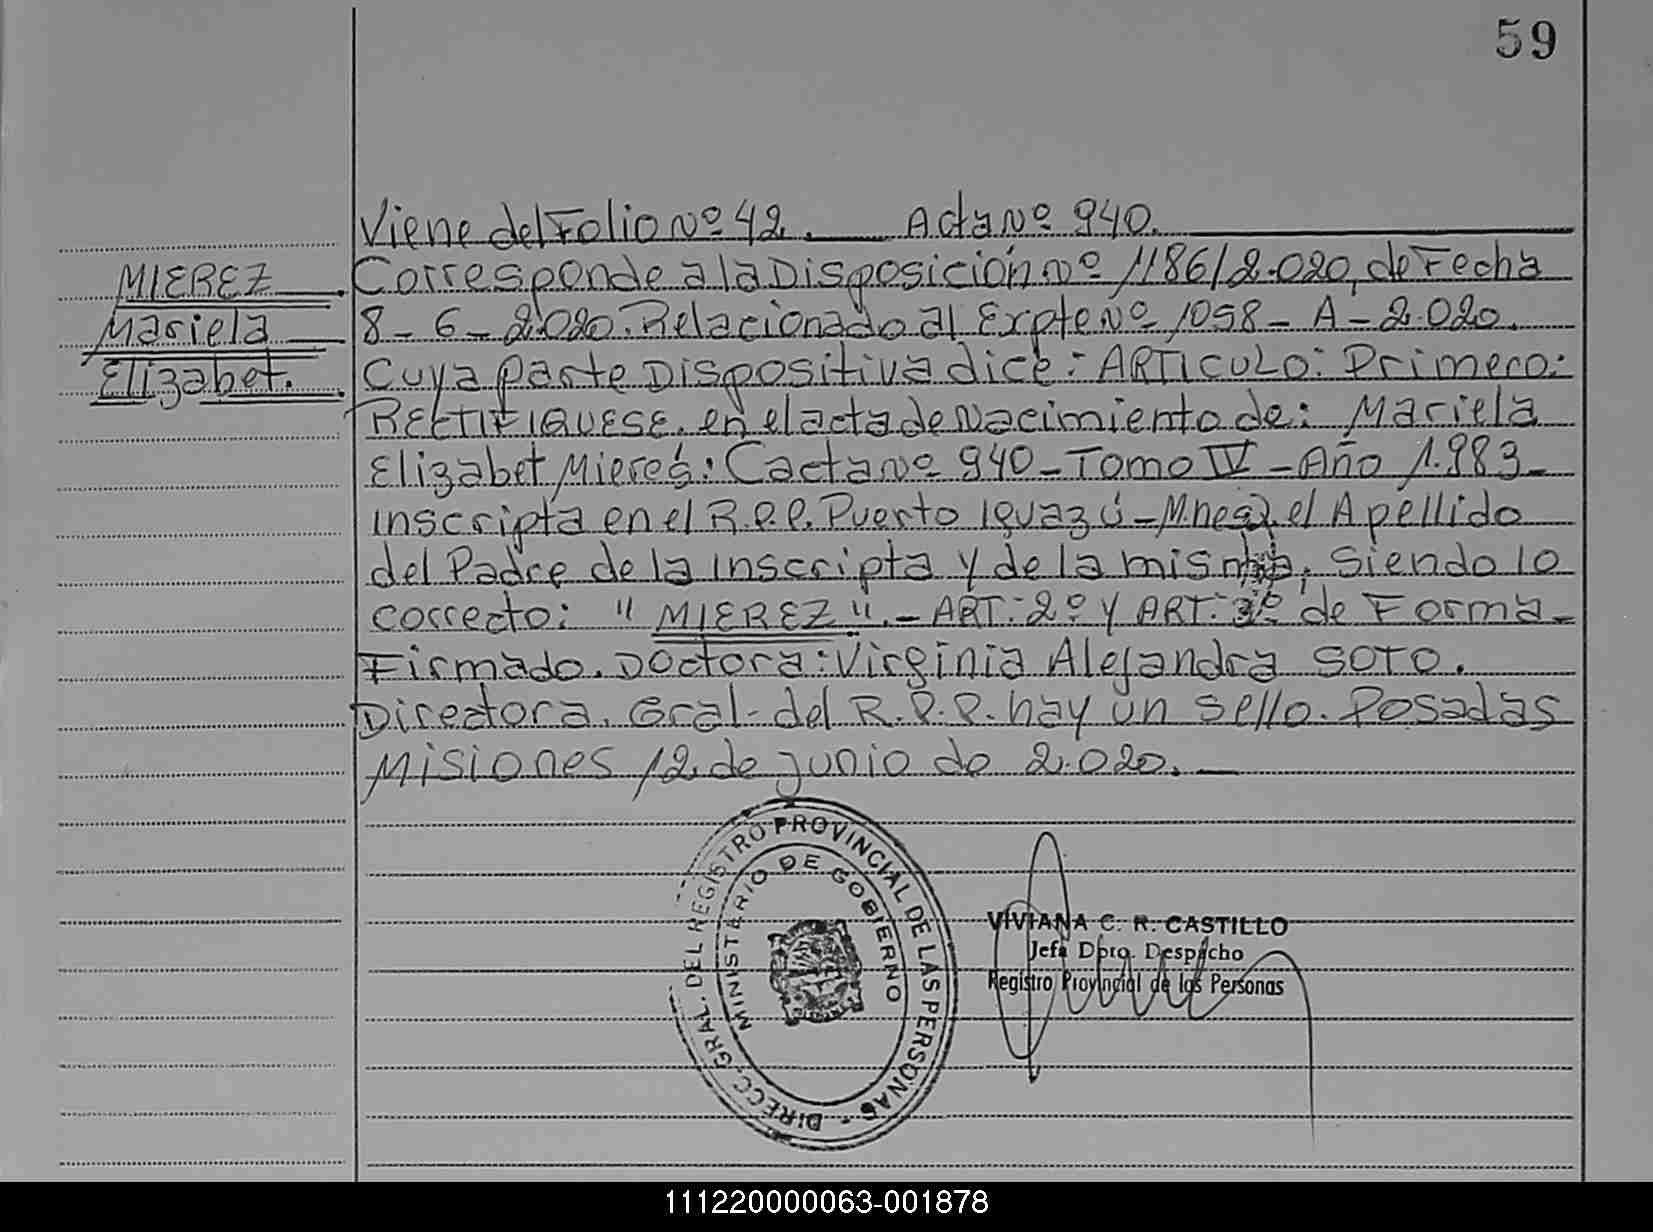 59
Viene del Folio Nº 42. Acta Nº 940.
MIEREZ
Mariela
Elizabet.
Corresponde a la Disposición nº 1186/2.020, de Fecha
8-6-2020. Relacionado al Expte Nº 1058-A-2.020.
Cuya parte Dispositiva dice: ARTICULO: Primero:
RECTIFIQUESE. en el acta de Nacimiento de: Mariela
Elizabet Mieres: Cacta nº 940-Tomo IV-Año 1.983-
inscripta en el R.P.P. Puerto Iguazú-Mnes). el Apellido
del Padre de la inscripta y de la misma, siendo lo
correcto: "MIEREZ".-ART:2º y ART:3º de Forma-
Firmado. Doctora: Virginia Alejandra SOTO.
Directora. Gral. del R.P.P. hay un sello. Posadas
Misiones 12 de junio de 2.020.
DIRECC. GRAL. DEL REGISTRO PROVINCIAL DE LAS PERSONAS -
MINISTERIO DE GOBIERNO
VIVIANA C. R. CASTILLO
Jefa Dpto. Despacho
Registro Provincial de las Personas
111220000063-001878